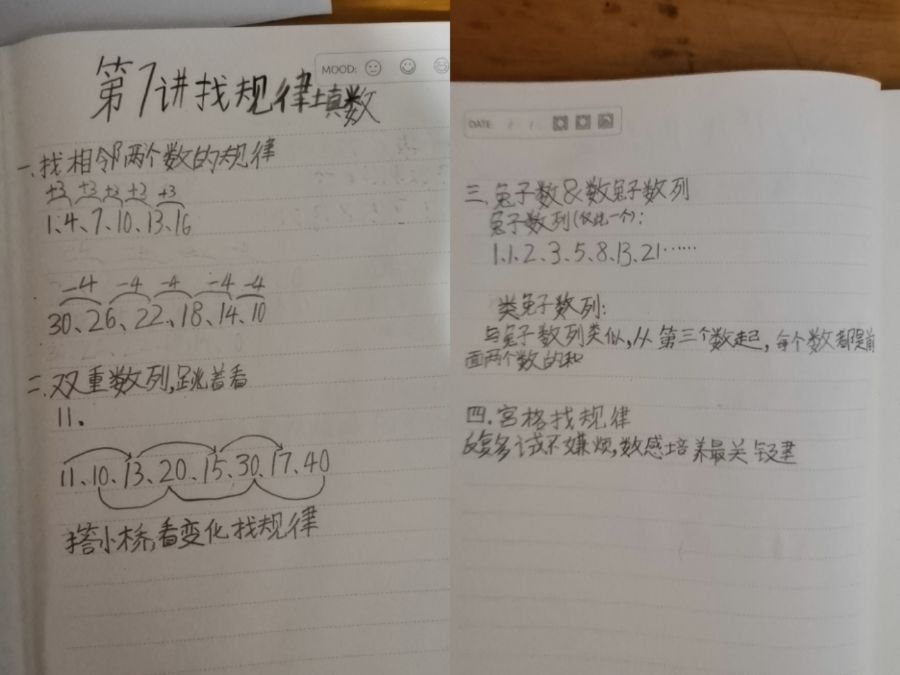 MOOD:
第7讲找规律填数
一、找相邻两个数的规律
+3 +3 +3 +3 +3
1、4、7、10、13、16
-4 -4 -4 -4 -4
30、26、22、18、14、10
二、双重数列,跳着看
11、
11、10、13、20、15、30、17、40
搭小桥,看变化找规律
DATE / /
三、兔子数&数兔子数列
兔子数列(仅此一个):
1、1、2、3、5、8、13、21……
类兔子数列:
与兔子数列类似,从第三个数起,每个数都是前
面两个数的和
四.宫格找规律
反复多试不嫌烦,数感培养最关键